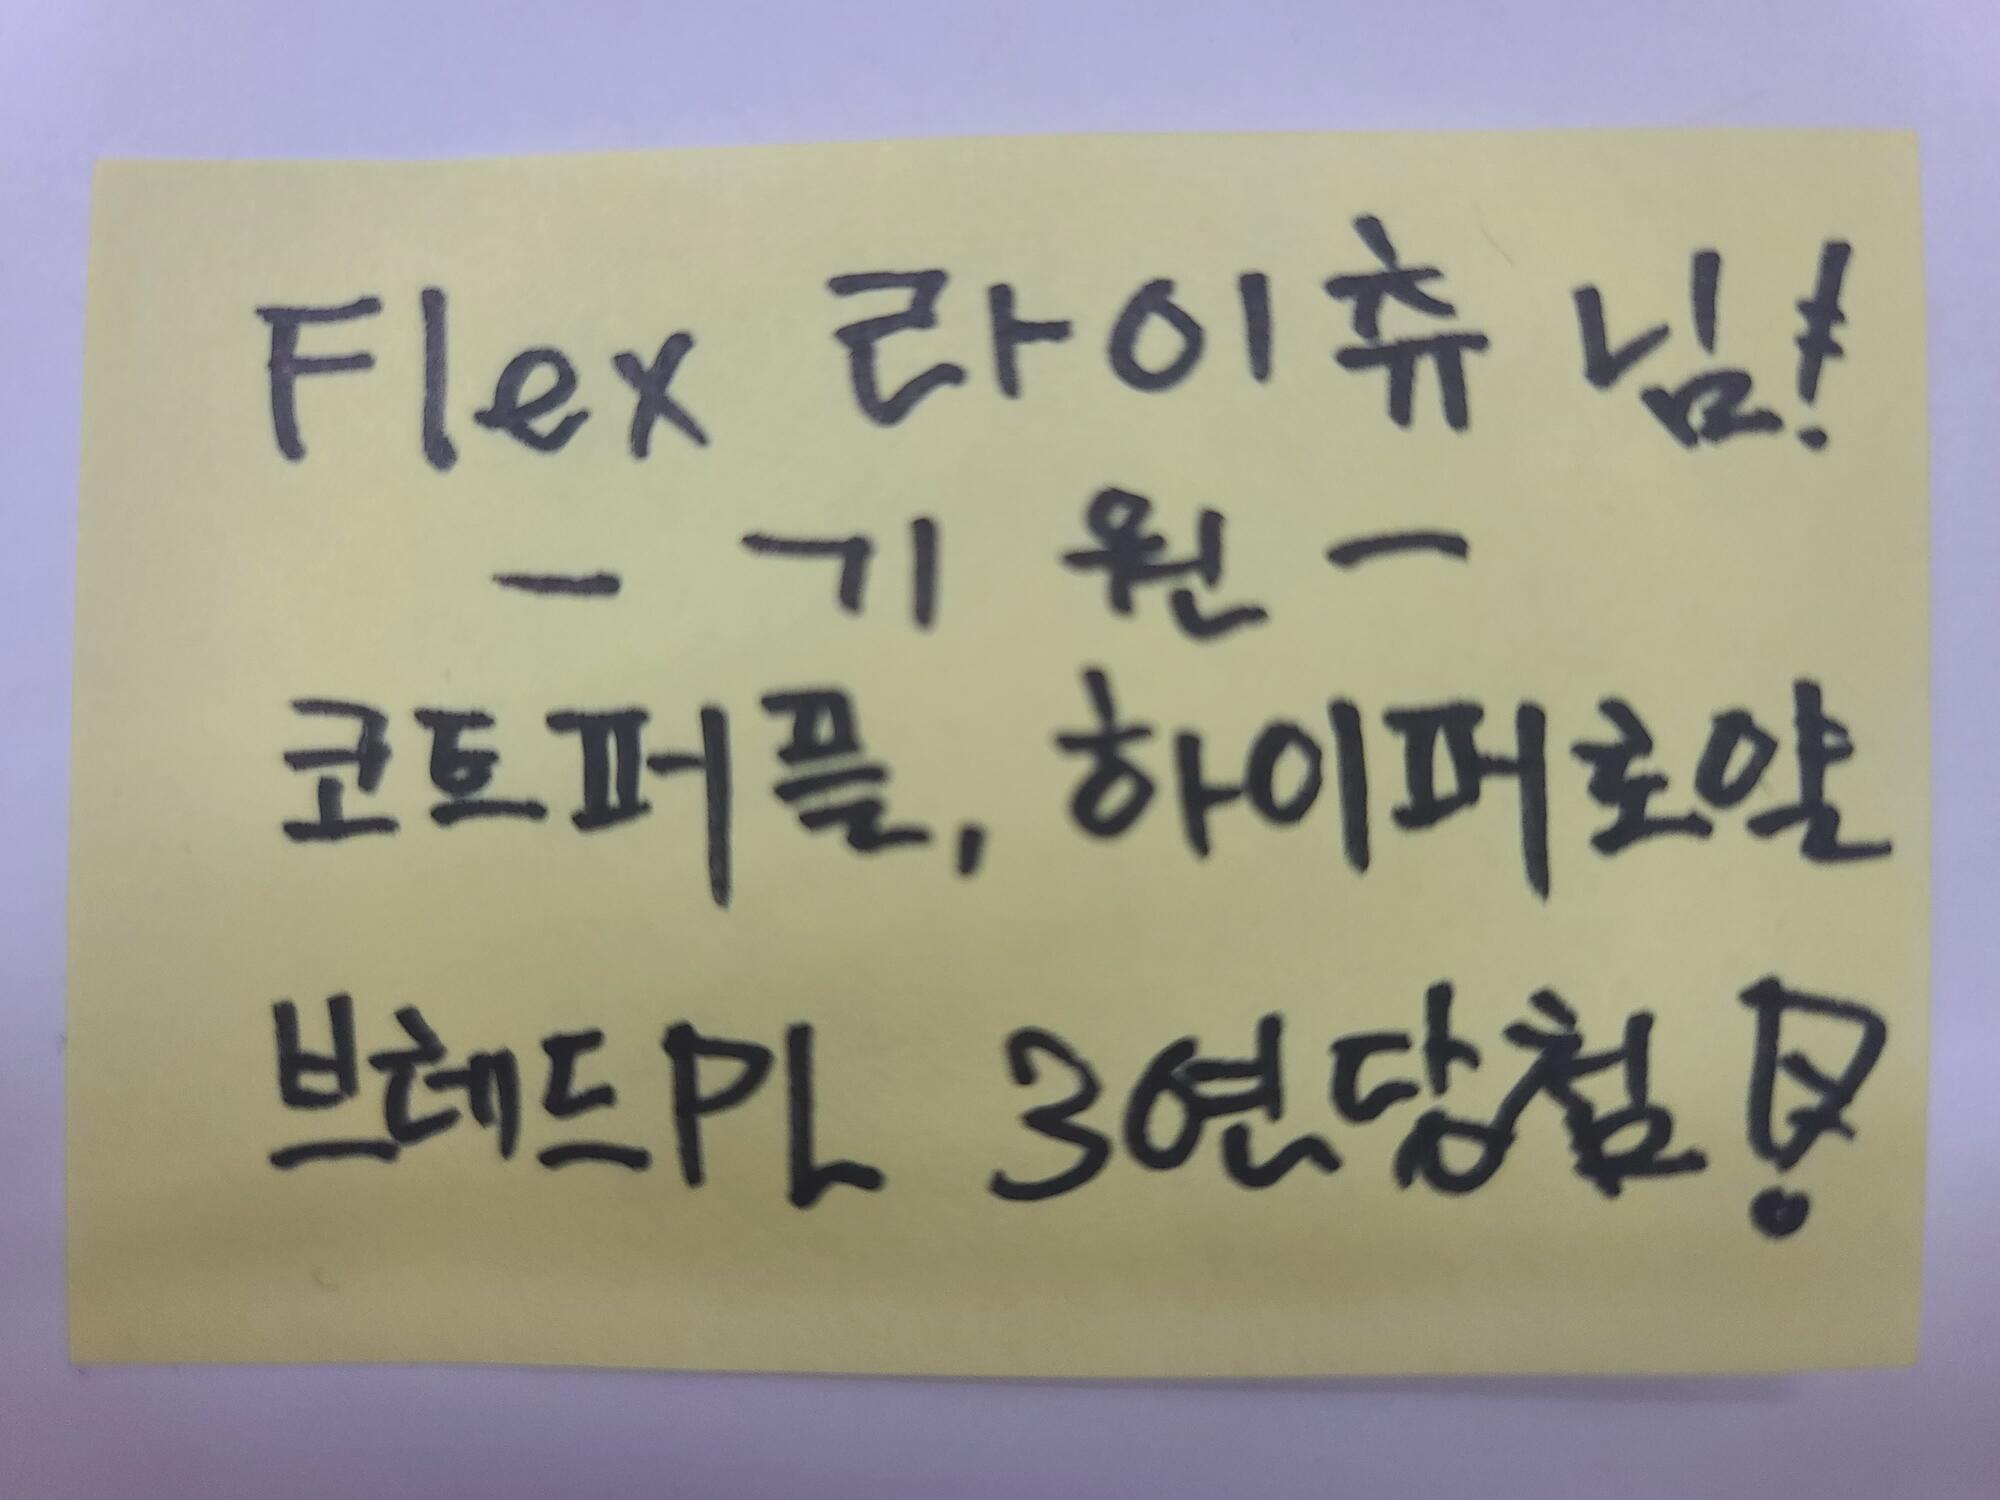 Flex 라이츄 님!
- 기 원 -
코트퍼플, 하이퍼로얄
브레드PL 3연당첨!